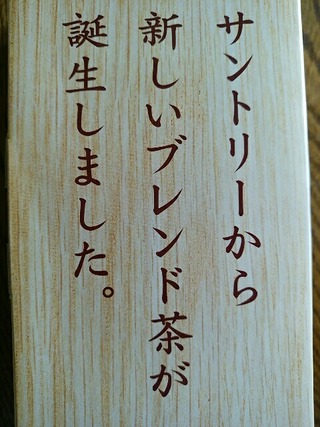 サントリーから
新しいブレンド茶が
誕生しました。